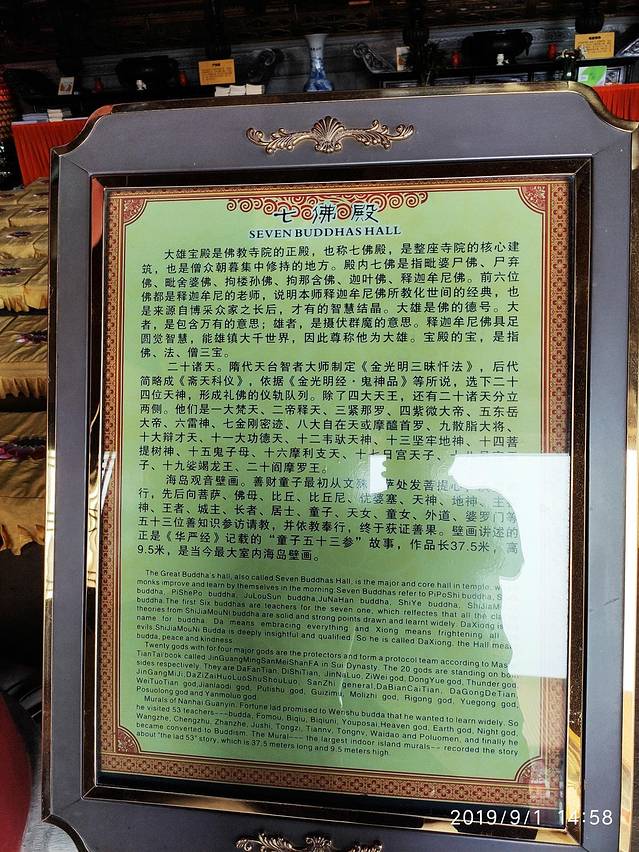 七佛殿
SEVEN BUDDHAS HALL
大雄宝殿是佛教寺院的正殿，也称七佛殿，是整座寺院的核心建
筑，也是僧众朝暮集中修持的地方。殿内七佛是指毗婆尸佛、尸弃
佛、毗舍婆佛、拘楼孙佛、拘那含佛、迦叶佛、释迦牟尼佛。前六位
佛都是释迦牟尼的老师，说明本师释迦牟尼佛所教化世间的经典，也
是来源自博采众家之长后，才有的智慧结晶。大雄是佛的德号。大
者，是包含万有的意思；雄者，是摄伏群魔的意思。释迦牟尼佛具足
圆觉智慧，能雄镇大千世界，因此尊称他为大雄。宝殿的宝，是指
佛、法、僧三宝。
二十诸天。隋代天台智者大师制定《金光明三昧忏法》，后代
简略成《斋天科仪》，依据《金光明经·鬼神品》等所说，选下二十
四位天神，形成礼佛的仪轨队列。除了四大天王，还有二十诸天分立
两侧。他们是一大梵天、二帝释天、三紧那罗、四紫微大帝、五东岳
大帝、六雷神、七金刚密迹、八大自在天或摩醯首罗、九散脂大将、
十大辩才天、十一大功德天、十二韦驮天神、十三坚牢地神、十四菩
提树神、十五鬼子母、十六摩利支天、十七日宫天子、十八月宫天
子、十九娑竭龙王、二十阎摩罗王。
海岛观音壁画。善财童子最初从文殊菩萨处发菩提心
行，先后向菩萨、佛母、比丘、比丘尼、优婆塞、天神、地神、主
神、王者、城主、长者、居士、童子、天女、童女、外道、婆罗门等
五十三位善知识参访请教，并依教奉行，终于获证善果。壁画讲述的
正是《华严经》记载的“童子五十三参”故事，作品长37.5米，高
9.5米，是当今最大室内海岛壁画。
The Great Buddha's hall, also called Seven Buddhas Hall, is the major and core hall in temple, w
monks improve and learn by themselves in the morning.Seven Buddhas refer to PiPoShi buddha, S
buddha, PiShePo buddha, JuLouSun buddha,JuNaHan buddha, ShiYe buddha, ShiJiaM
buddha.The first Six buddhas are teachers for the seven one, which reflectes that all the cla
theories from ShiJiaMouNi buddha are solid and strong points drawn and learnt widely. DaXiong is
name for buddha. Da means embracing everything and Xiong means frightening all
evils.ShiJiaMouNi Budda is deeply insightful and qualified. So he is called DaXiong. the Hall mea
budda, peace and kindness.
Twenty gods with four major gods are the protectors and form a protocol team according to Mas
TianTai book called JinGuangMingSanMeiShanFA in Sui Dynasty. The 20 gods are standing on bo
sides respectively. They are DaFanTian, DiShiTian, JinNaLuo, ZiWei god, DongYue god, Thunder god
JinGangMiJi,DaZiZaiHuoLuoShuShouLuo, SanZhi general,DaBianCaiTian, DaGongDeTian,
WeiTuoTian god,Jianlaodi god, Putishu god, Guizimu, Molizhi god, Rigong god, Yuegong god,
Posuolong god and Yanmoluo god.
Murals of Nanhai Guanyin. Fortune lad promised to Wenshu budda that he wanted to learn widely. So
he visited 53 teachers---budda, Fomou, Biqiu, Biqiuni, Youposai,Heaven god, Earth god, Night god,
Wangzhe, Chengzhu, Zhanzhe, Jushi, Tongzi, Tiannv, Tongnv, Waidao and Poluomen, and finally he
became converted to Buddhism. The Mural--- the largest indoor island murals-- recorded the story
about "the lad 53" story, which is 37.5 meters long and 9.5 meters high.
2019/9/1 14:58